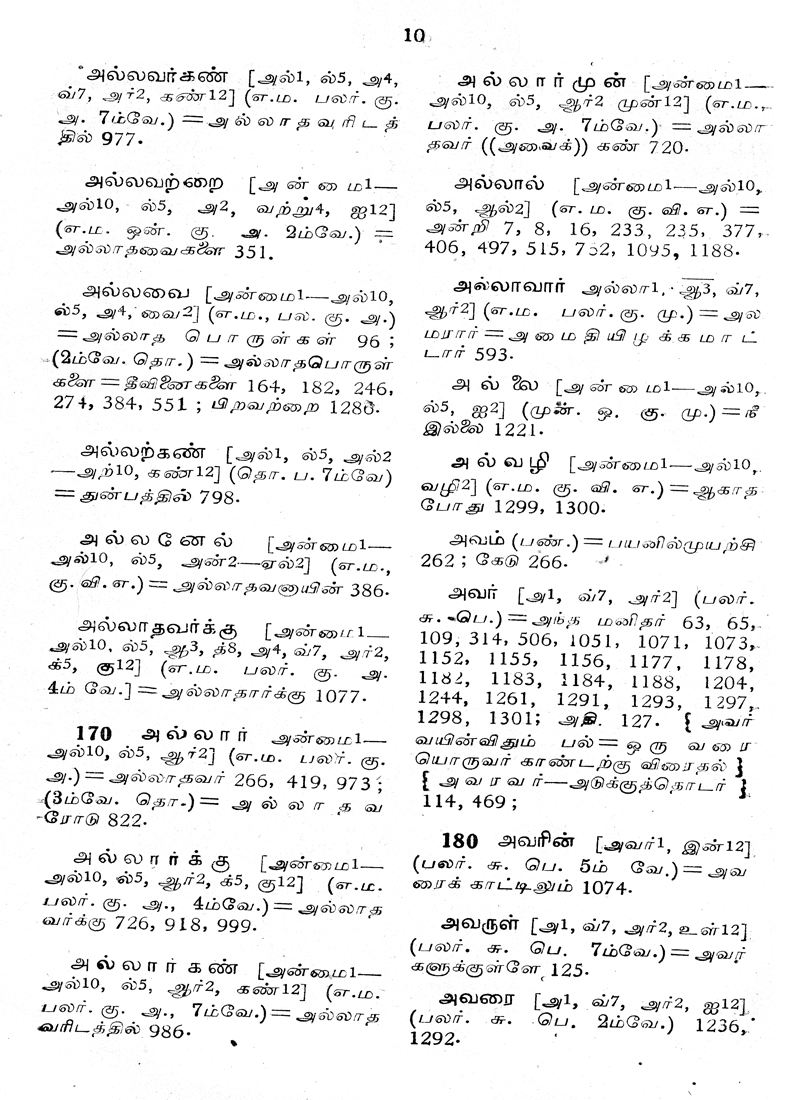 10
அல்லவர்கண் [அல்1, ல்5, அ4,
வ்7, அர்2, கண்12] (எ.ம. பலர். கு.
அ. 7ம்வே.) = அல்லாதவரிடத்
தில் 977.
அல்லவற்றை [அன்மை1—
அல்10, ல்5, அ2, வற்று4, ஐ12]
(எ.ம. ஒன். கு. அ. 2ம்வே.) =
அல்லாதவைகளை 351.
அல்லவை [அன்மை1—அல்10,
ல்5, அ4, வை2] (எ.ம., பல. கு. அ.)
= அல்லாத பொருள்கள் 96 ;
(2ம்வே. தொ.) = அல்லாதபொருள்
களை = தீவினைகளை 164, 182, 246,
274, 384, 551 ; பிறவற்றை 1286.
அல்லற்கண் [அல்1, ல்5, அல்2
—அற்10, கண்12] (தொ. ப. 7ம்வே)
= துன்பத்தில் 798.
அல்லனேல் [அன்மை1—
அல்10, ல்5, அன்2—ஏல்2] (எ.ம.,
கு. வி. எ.) = அல்லாதவனாயின் 386.
அல்லாதவர்க்கு [அன்மை1—
அல்10, ல்5, ஆ3, த்8, அ4, வ்7, அர்2,
க்5, கு12] (எ.ம. பலர். கு. அ.
4ம் வே.] = அல்லாதார்க்கு 1077.
170 அல்லார் அன்மை1—
அல்10, ல்5, ஆர்2] (எ.ம. பலர். கு.
அ.) = அல்லாதவர் 266, 419, 973 ;
(3ம்வே. தொ.) = அல்லாதவ
ரோடு 822.
அல்லார்க்கு [அன்மை1—
அல்10, ல்5, ஆர்2, க்5, கு12] (எ.ம.
பலர். கு. அ., 4ம்வே.) = அல்லாத
வர்க்கு 726, 918, 999.
அல்லார்கண் [அன்மை1—
அல்10, ல்5, ஆர்2, கண்12] (எ.ம.
பலர். கு. அ., 7ம்வே.) = அல்லாத
வரிடத்தில் 986.
அல்லார்முன் [அன்மை1—
அல்10, ல்5, ஆர்2 முன்12] (எ.ம.,
பலர். கு. அ. 7ம்வே.) = அல்லா
தவர் ((அவைக்)) கண் 720.
அல்லால் [அன்மை1—அல்10,
ல்5, ஆல்2] (எ. ம. கு. வி. எ.) =
அன்றி 7, 8, 16, 233, 235, 377,
406, 497, 515, 752, 1095, 1188.
அல்லாவார் அல்லா1, ஆ3, வ்7,
ஆர்2] (எ.ம. பலர். கு. மு.) = அல
மரார் = அமைதியிழக்கமாட்
டார் 593.
அல்லை [அன்மை1—அல்10,
ல்5, ஐ2] (முன். ஒ. கு. மு.) = நீ
இல்லை 1221.
அல்வழி [அன்மை1—அல்10,
வழி2] (எ.ம. கு. வி. எ.) = ஆகாத
போது 1299, 1300.
அவம் (பண்.) = பயனில்முயற்சி
262 ; கேடு 266.
அவர் [அ1, வ்7, அர்2] (பலர்.
சு. பெ.) = அந்த மனிதர் 63, 65,
109, 314, 506, 1051, 1071, 1073,
1152, 1155, 1156, 1177, 1178,
1182, 1183, 1184, 1188, 1204,
1244, 1261, 1291, 1293, 1297,
1298, 1301; அதி. 127. { அவர்
வயின்விதும் பல் = ஒரு வரை
யொருவர் காண்டற்கு விரைதல் }
{ அவரவர்—அடுக்குத்தொடர் }
114, 469 ;
180 அவரின் [அவர்1, இன்12]
(பலர். சு. பெ. 5ம் வே.) = அவ
ரைக் காட்டிலும் 1074.
அவருள் [அ1, வ்7, அர்2, உள்12]
(பலர். சு. பெ. 7ம்வே.) = அவர்
களுக்குள்ளே 125.
அவரை [அ1, வ்7, அர்2, ஐ12]
(பலர். சு. பெ. 2ம்வே.) 1236,
1292.